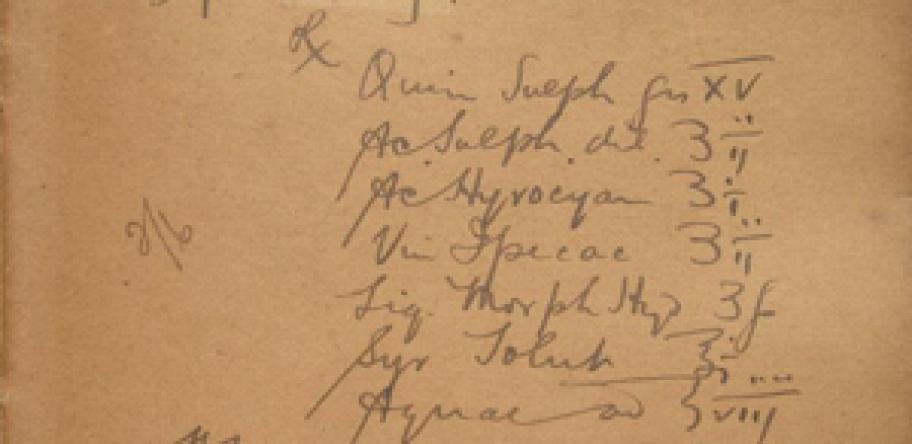 ℞
Quin Sulph grs XV
Ac. Sulph. dil. ʒ ii
Ac Hyrocyan ʒ i
2/6
Vin Ipecac ʒ ii
Liq. Morph Hyd ʒ f
Syr Tolut ʒ i
Aquae ad ℥ VIII